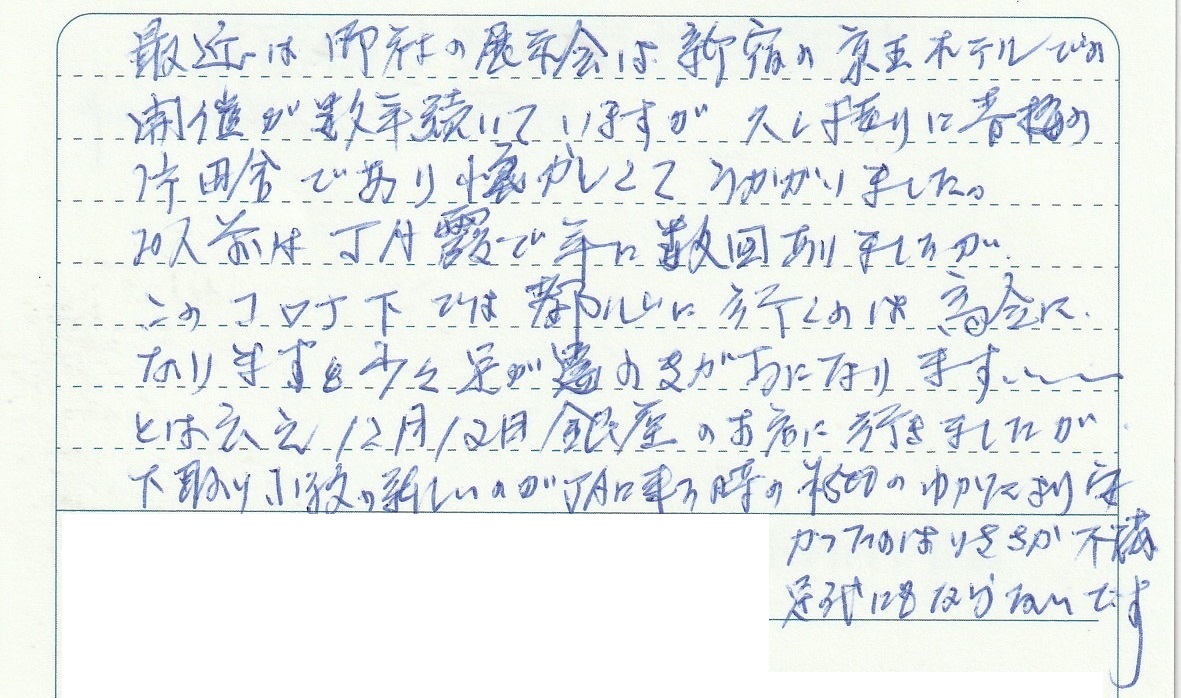 最近は御社の展示会は新宿の京王ホテルでの
開催が数年続いていますが久し振りに青梅の
片田舎であり懐かしくてうかがいました。
20年前は丁Aで年に数回ありましたが
このコロナ下では都心に行くのは
なりますと少々足が遠のきがちになります
とは云え12月12日銀座のお店に行きましたが
下取り小紋の新しいのが
かったのはいささか不満
足代にもならないです